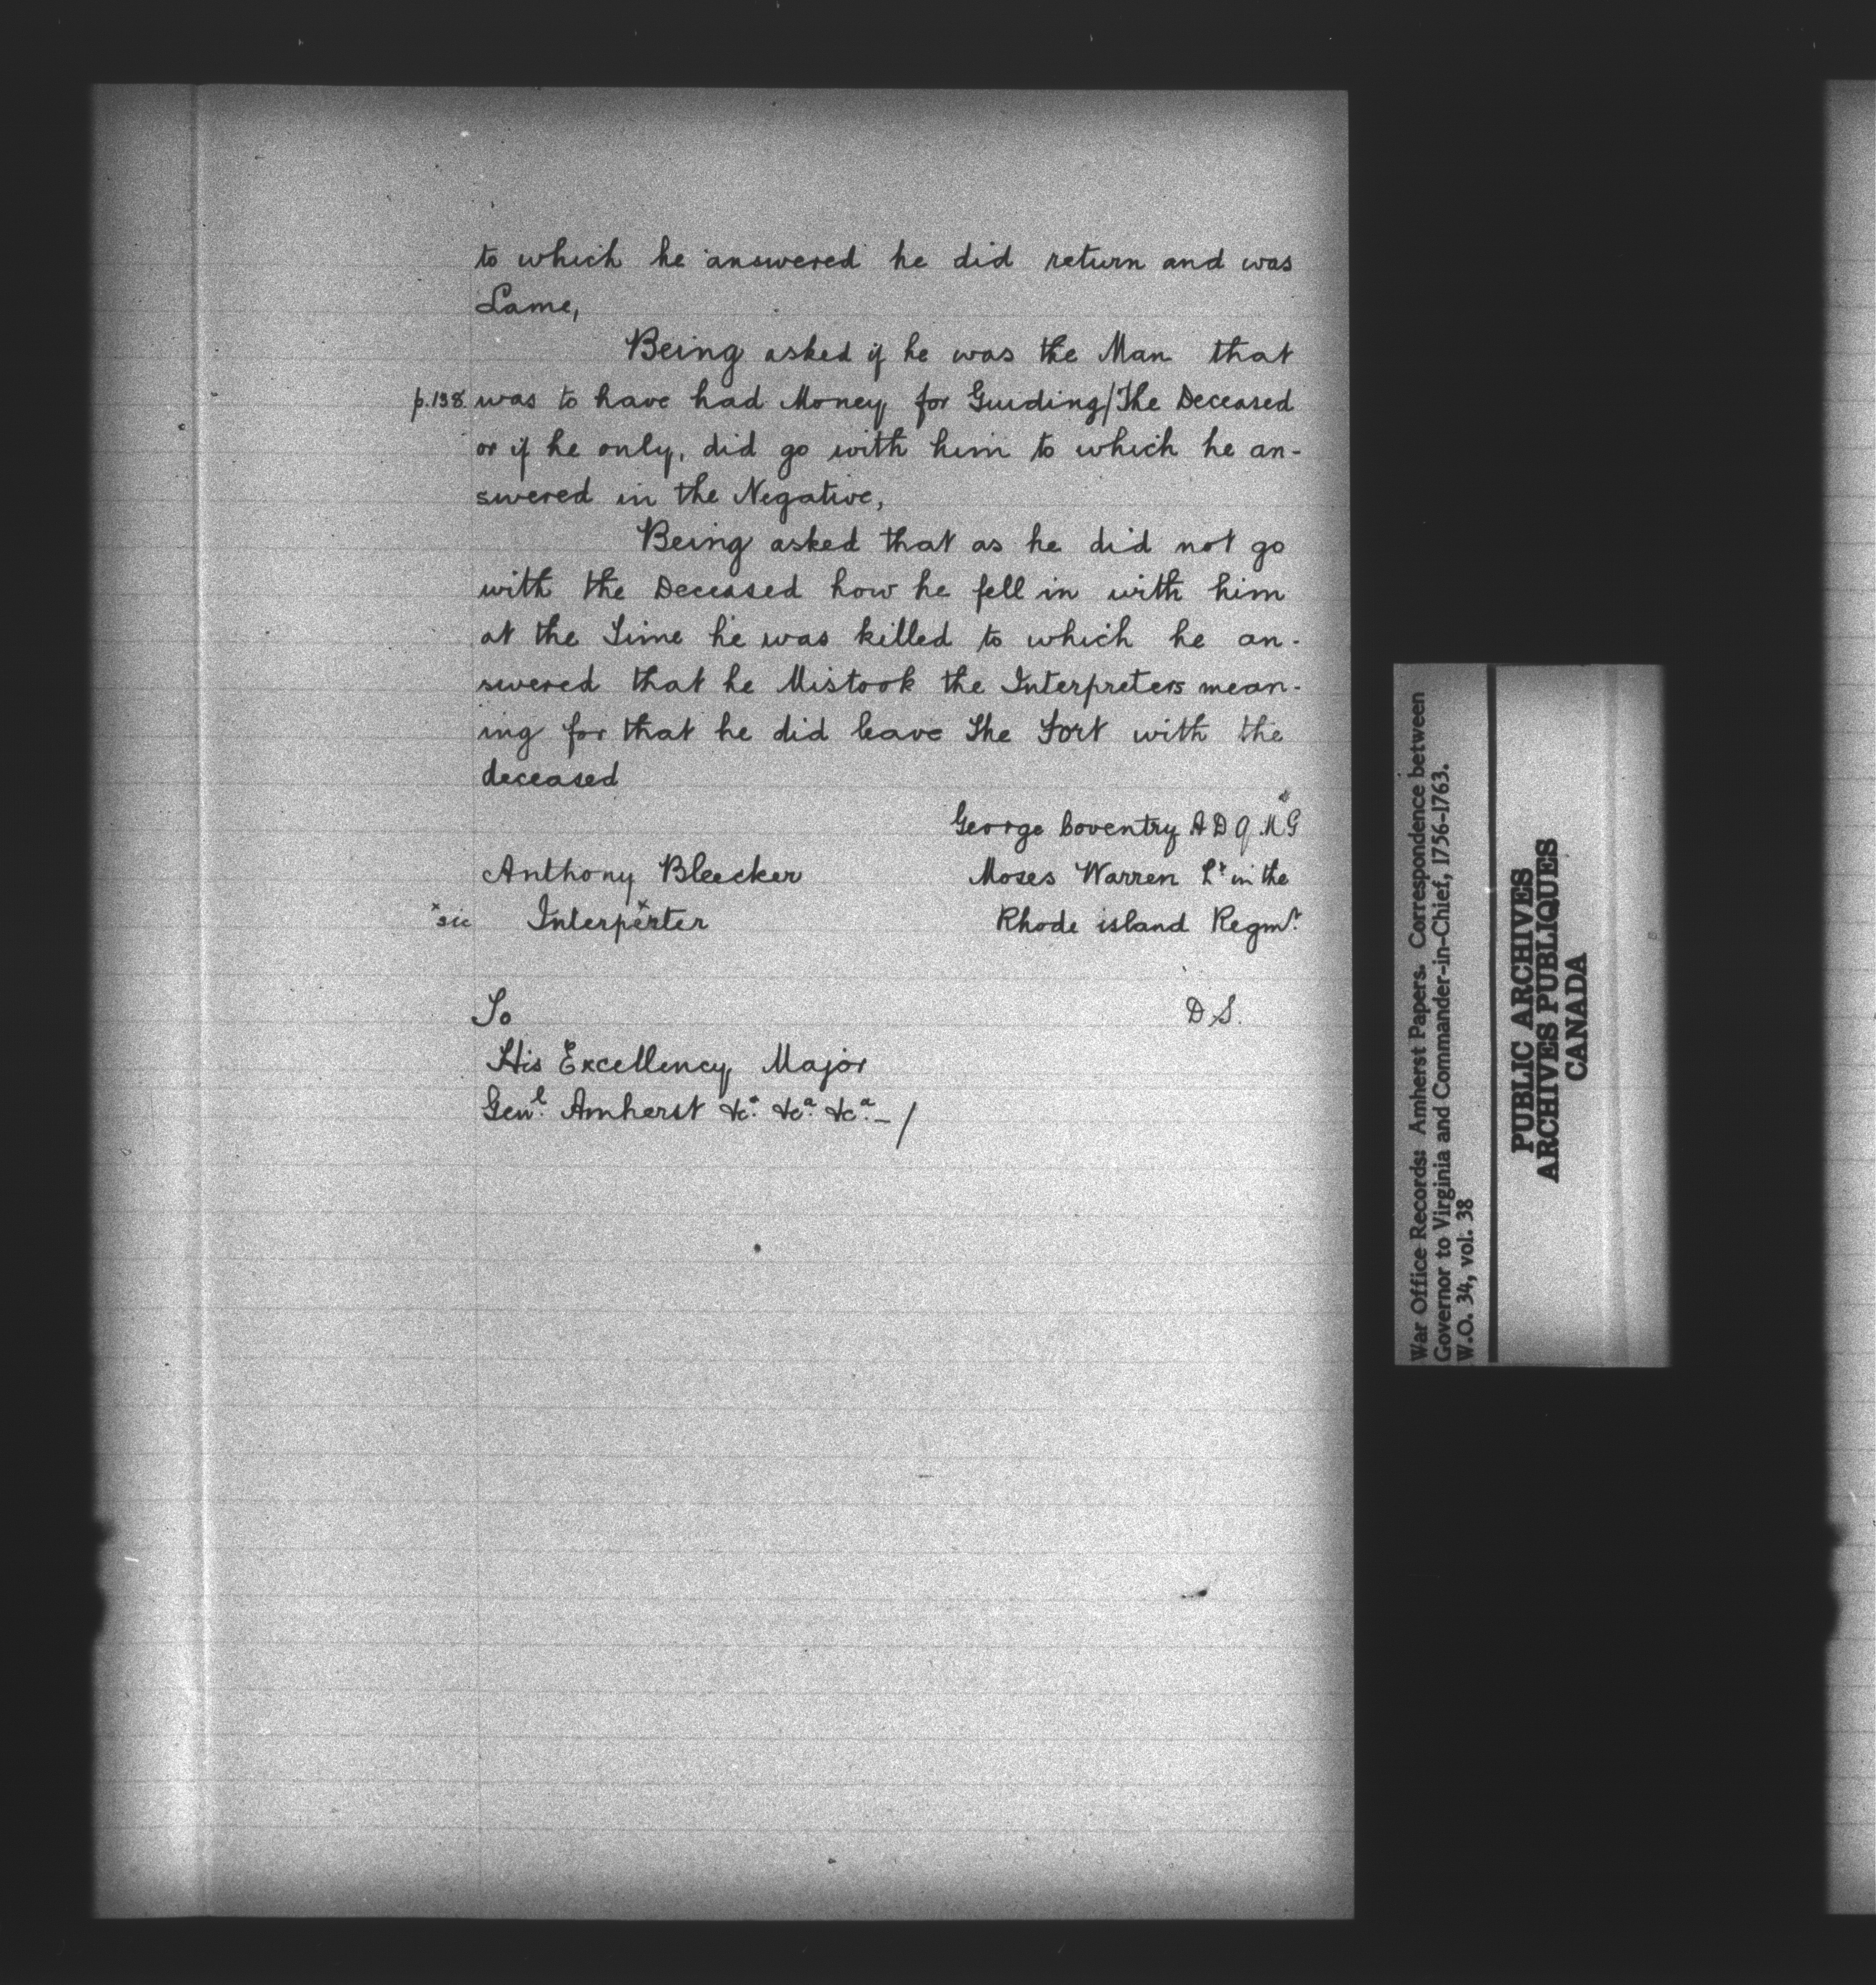 to which he answered he did return and was
Lame,
Being asked if he was the Man that
p.138 was to have had Money for Guiding/The Deceased
or if he only, did go with him to which he an-
swered in the Negative,
Being asked that as he did not go
with the Deceased how he fell in with him
at the Time he was killed to which he an-
swered that he Mistook the Interpreters mean-
ing for that he did leave The Fort with the
deceased
George Coventry A D Q M G
Anthony Bleecker Moses Warren Lt in the
x sic Interperter x Rhode island Regmt.
To D.S.
His Excellency Major
Genl. Amherst &ca. &ca. &ca. - /
War Office Records: Amherst Papers. Correspondence between
Governor to Virginia and Commander-in-Chief, 1756-1763.
W.O. 34, vol. 38
PUBLIC ARCHIVES
ARCHIVES PUBLIQUES
CANADA